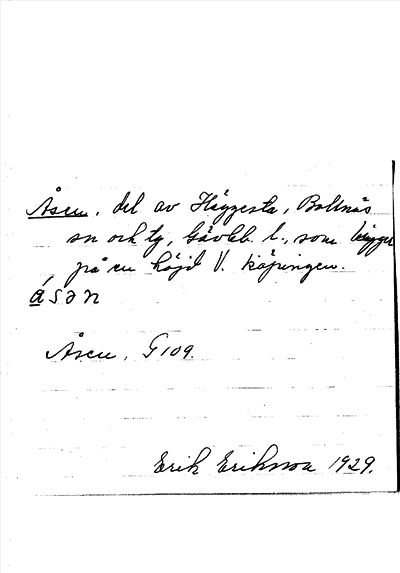 Åsen, del av Häggesta, Bollnäs
sn och tg, Gävleb. l., som ligger
på en höjd V. köpingen.
ásən
Åsen, G 109.
Erik Eriksson 1929.